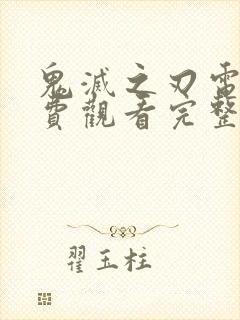 鬼滅之刃雷
費觀看完整
翟玉柱